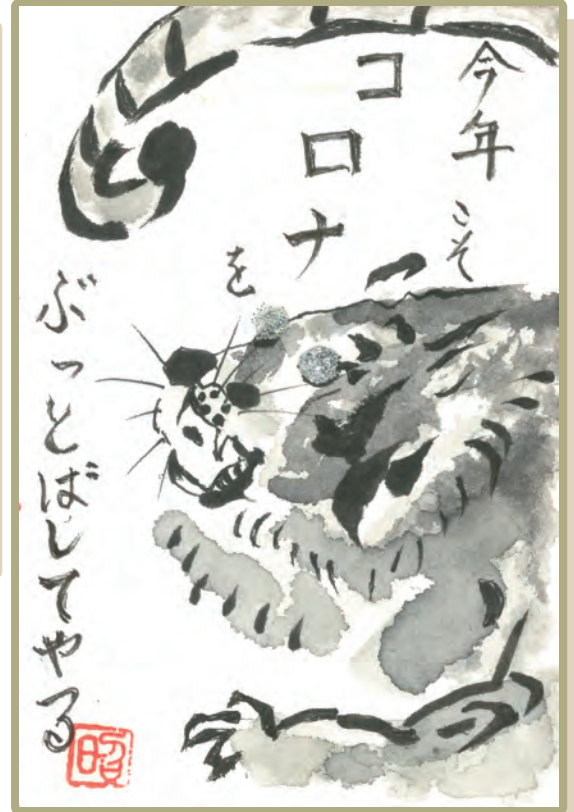 今年
こそ
コロナ
を
ぶっとばしてやる
昭